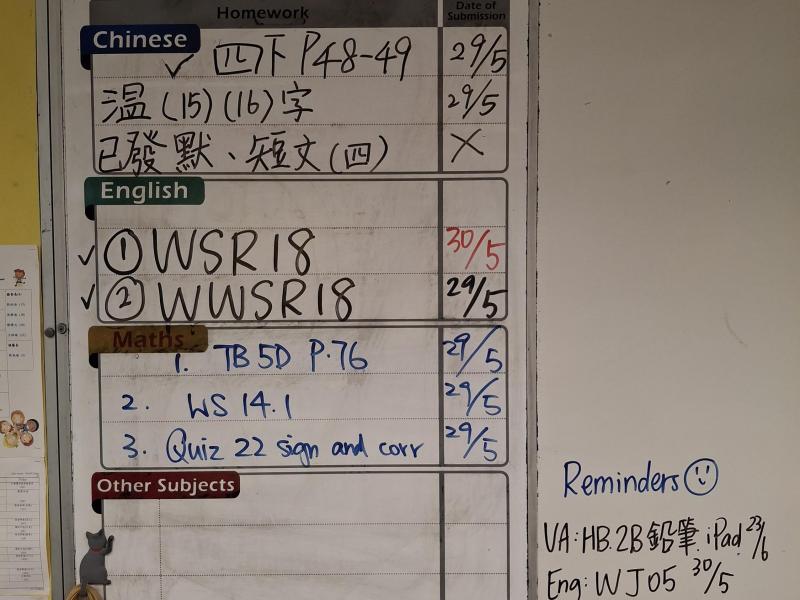 Homework
Date of
Submission
Chinese
✓ 四下 P48-49 29/5
温 (15) (16) 字 29/5
已發 默、短文 (四) ×
English
✓ ① WSR18 30/5
✓ ② WWSR18 29/5
Maths
1. TB 5D P.76 29/5
2. WS 14.1 29/5
3. Quiz 22 sign and corr 29/5
Other Subjects
Reminders
VA: HB.2B鉛筆.iPad 23/6
Eng: WJ05 30/5